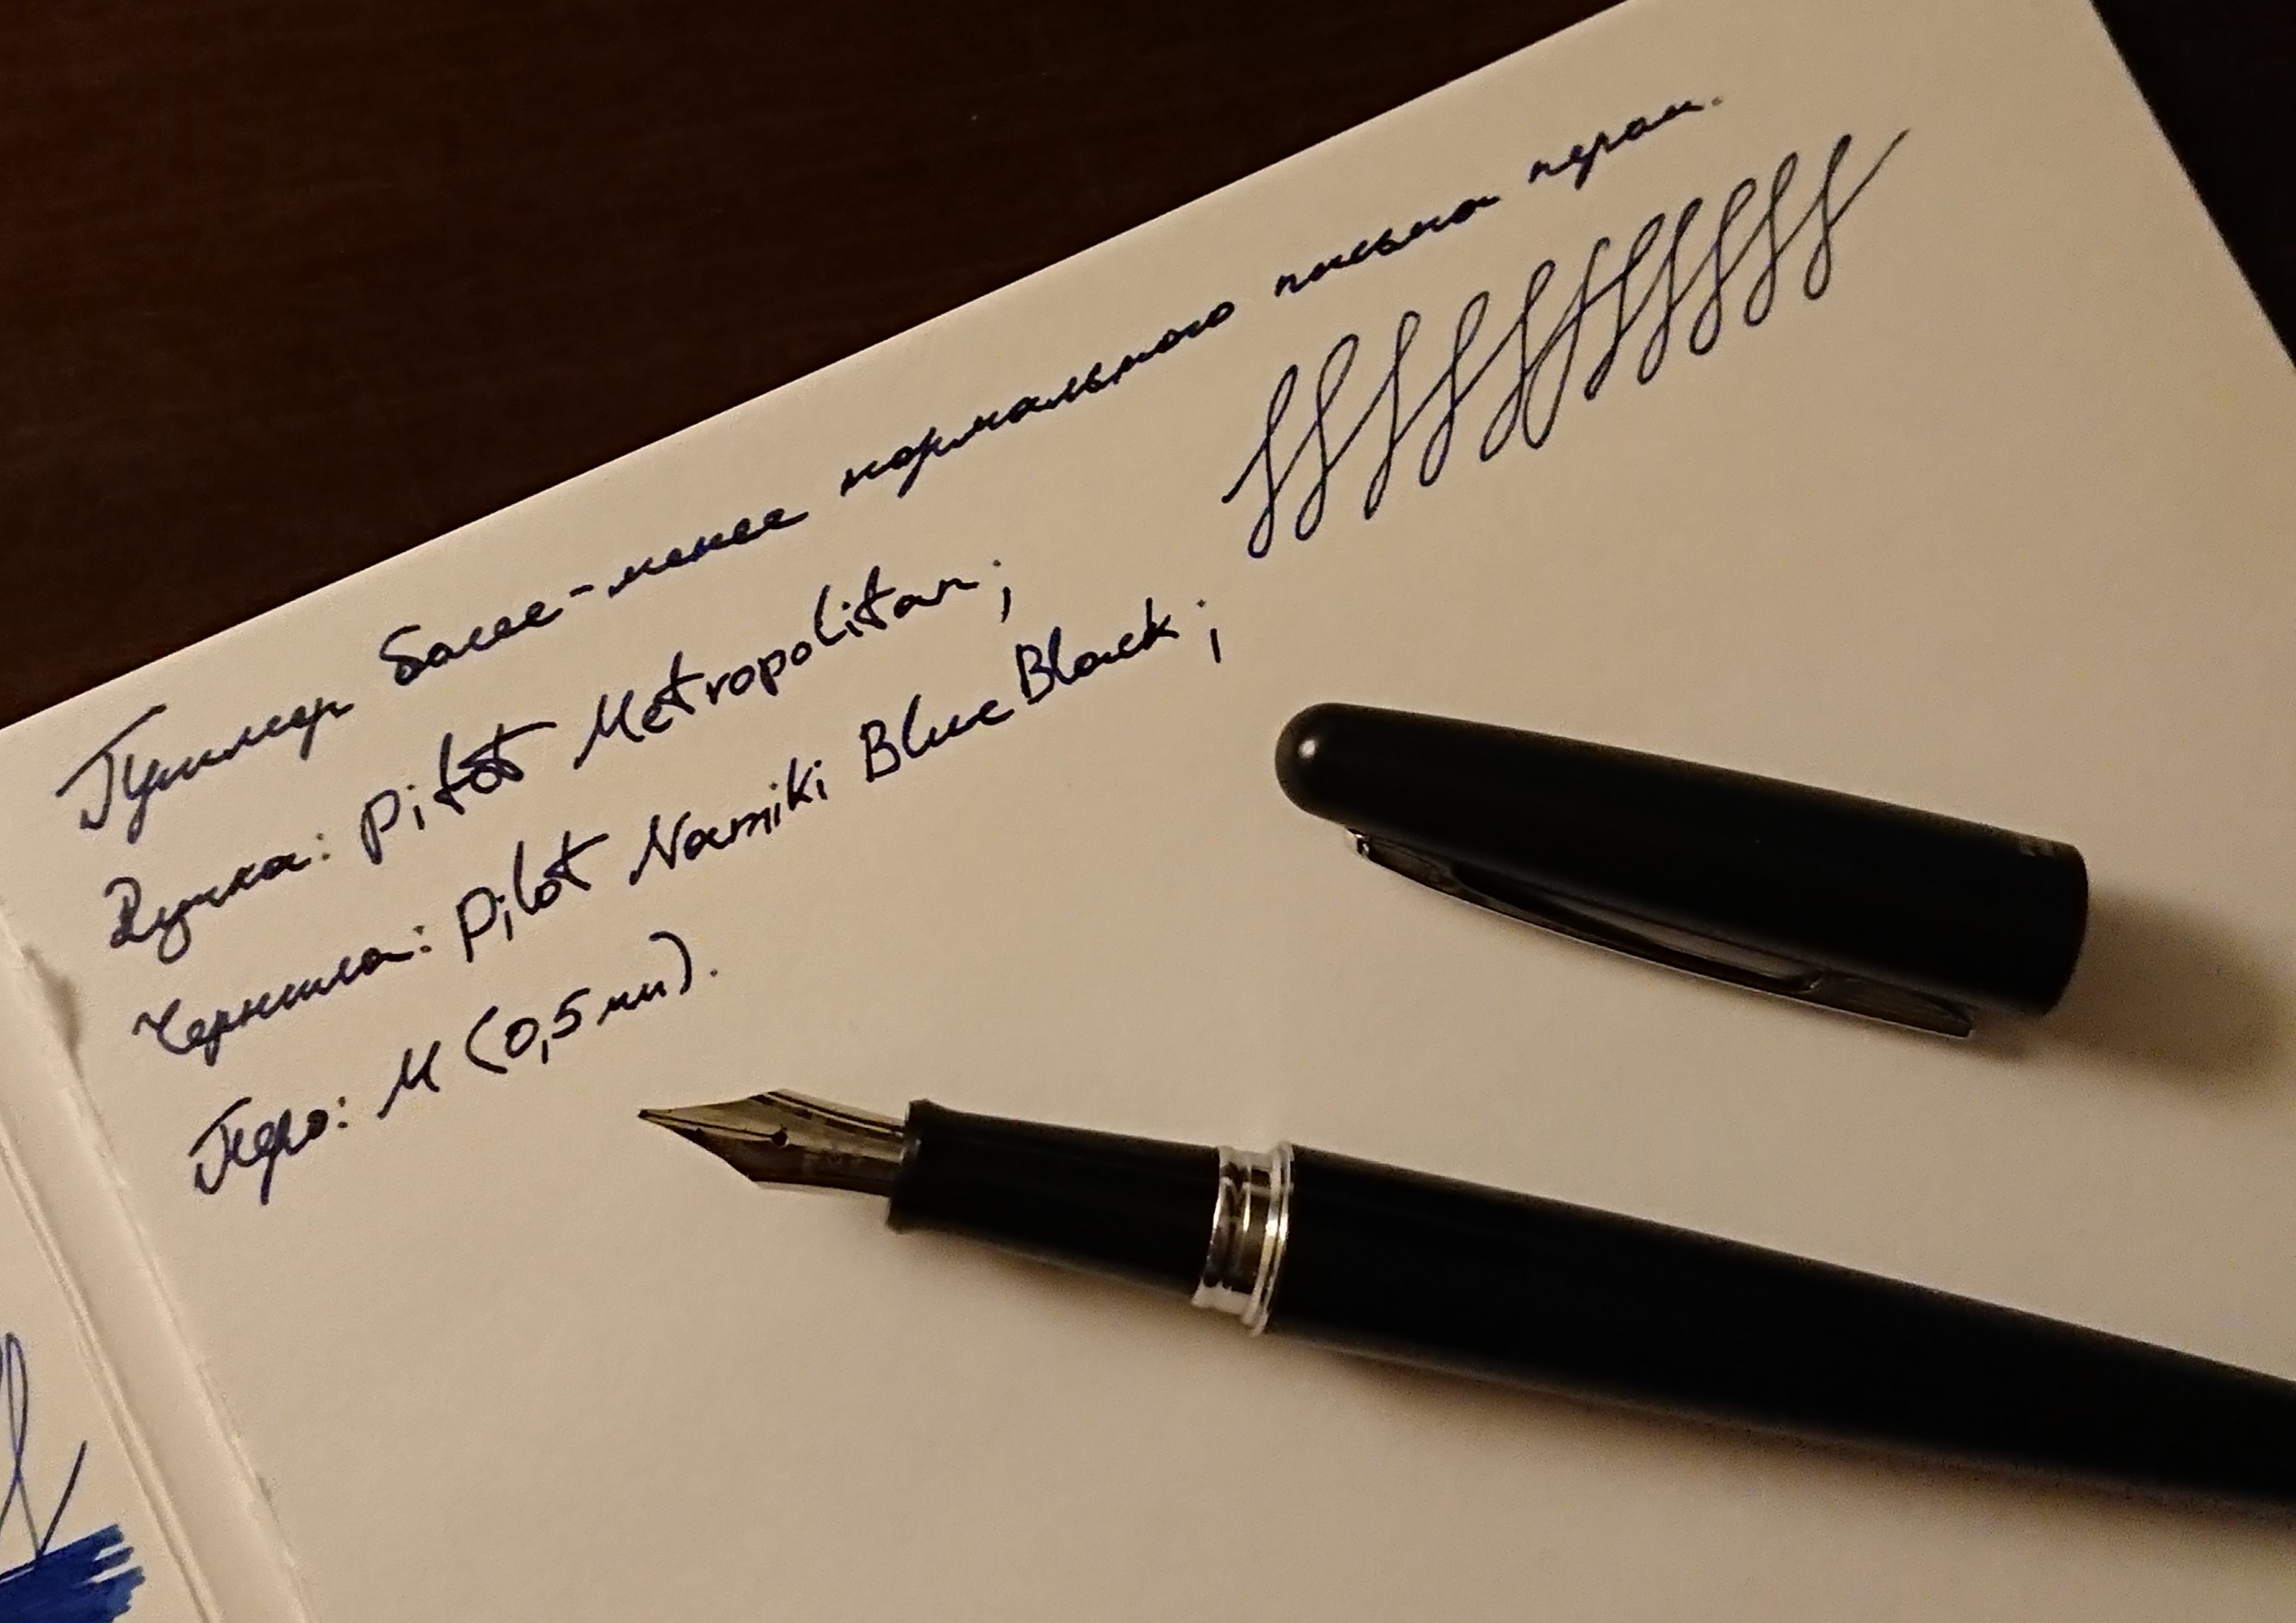 Пример более-менее нормального письма пером.
Ручка: Pilot Metropolitan;
Чернила: Pilot Namiki Blue Black;
Перо: M (0,5 мм).